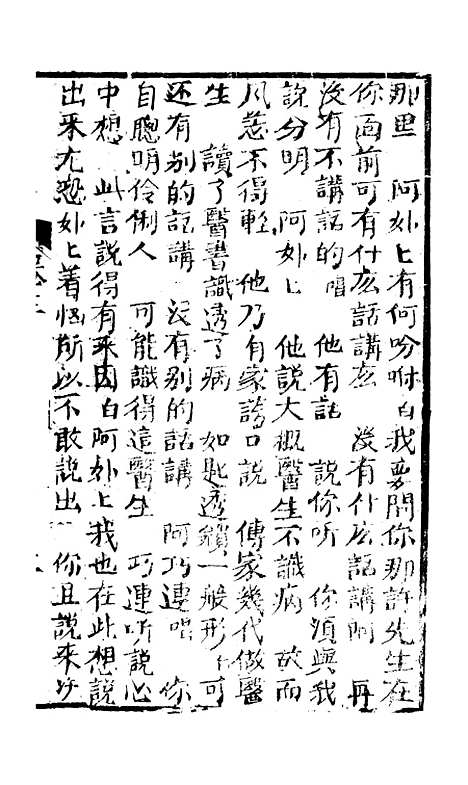 那里　阿奶上有何吩咐白我要問你那許先生在
你面前可有什広話講広　沒有什広話講阿　再
沒有不講話的唱　他有話　說你听　你須與我
說分明　阿奶上　他說大概醫生不識病　故而
惹不得輕　他乃自家誇口說　傳家幾代做醫
生　讀了醫書識透了病　如匙透鎖一般形　可
还有别的話講　沒有别的話講　阿巧連唱　你
自聰明伶俐人　可能識得這醫生　巧連听說心
中想　此言說得有來因白阿奶上我也在此想說
出來尤恐奶上着惱所以不敢說出　你且說來